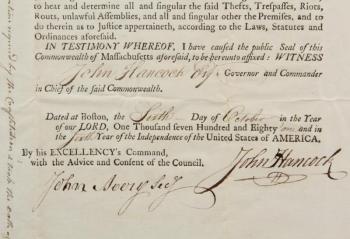 to hear and determine all and singular the said Thefts, Trespasses, Riots,
Routs, unlawful Assemblies, and all and singular other the Premises, and to
do therein as to Justice appertaineth, according to the Laws, Statutes and
Ordinances aforesaid.
IN TESTIMONY WHEREOF, I have caused the public Seal of this
Commonwealth of Massachusetts aforesaid, to be hereunto affixed: WITNESS
John Hancock Esqr. Governor and Commander
in Chief of the said Commonwealth.
Dated at Boston, the Sixth Day of October in the Year
of our LORD, One Thousand seven Hundred and Eighty one and in
the Sixth Year of the Independence of the United States of AMERICA,
By his EXCELLENCY's Command,
with the Advice and Consent of the Council,
John Hancock
John Avery Secy